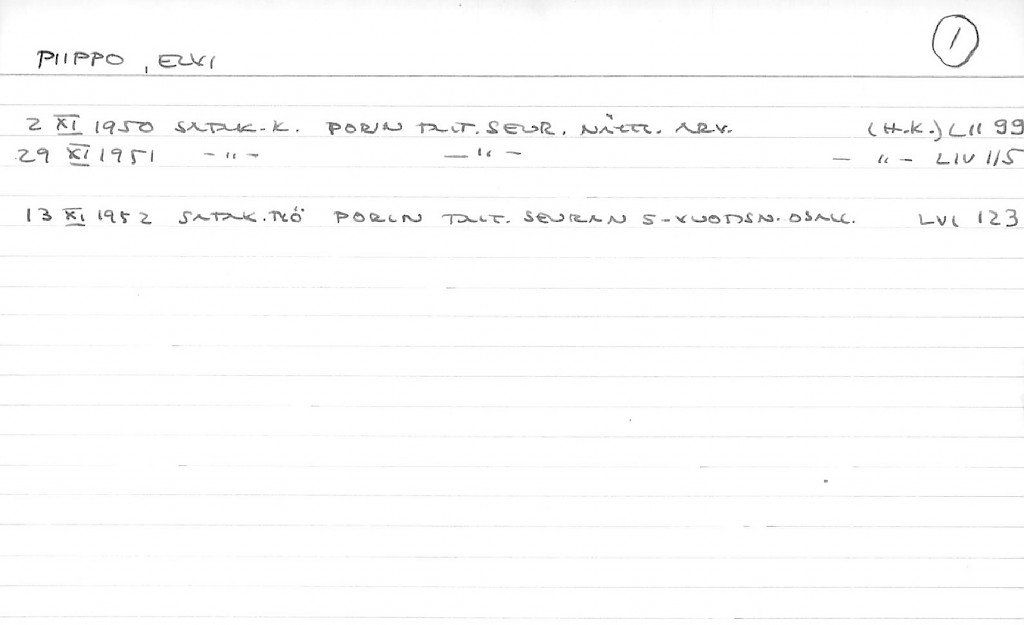 1
PIIPPO, ELVI
2 XI 1950 SATAK.K. PORIN TAIT. SEUR. NÄYTT. ARV. (H.K.) LII 99
29 XI 1951 -"- -"- -"- LIV 115
13 XI 1952 SATAK. TYÖ PORIN TAIT. SEURAN 5-VUOTISN. OSALL. LVI 123